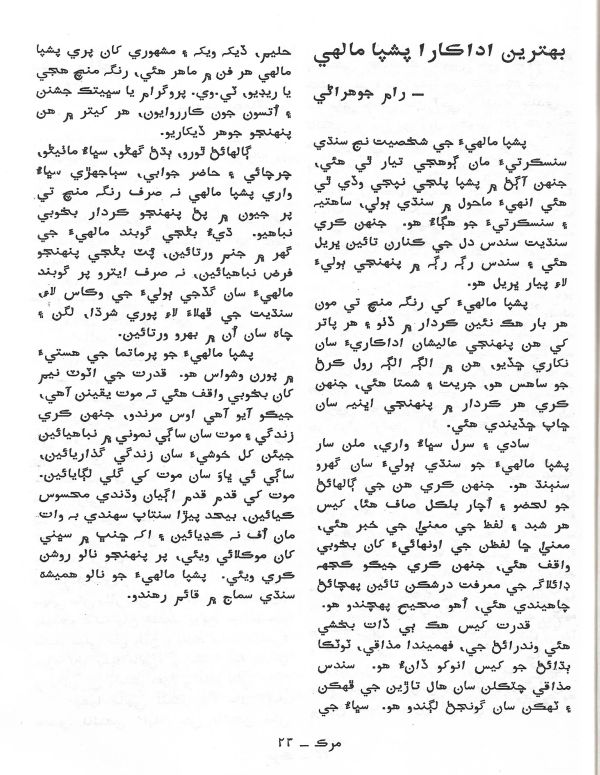 بهترين اداڪارا پشپا مالهي
— رام جوهراڻي
پشپا مالهيءَ جي شخصيت نج سنڌي
سنسڪرتيءَ مان ڳوهجي تيار ٿي هئي،
جنهن آڳڻ ۾ پشپا پلجي نپجي وڏي ٿي
هئي انهيءَ ماحول ۾ سنڌي ٻولي، ساهتيہ
۽ سنسڪرتيءَ جو هڳاءُ هو. جنهن ڪري
سنڌيت سندس دل جي ڪنارن تائين ڀريل
هئي ۽ سندس رڳ رڳ ۾ پنهنجي ٻوليءَ
لاءِ پيار ڀريل هو.
پشپا مالهيءَ کي رنگہ منچ تي مون
هر بار هڪ نئين ڪردار ۾ ڏٺو ۽ هر پاتر
کي هن پنهنجي عاليشان اداڪاريءَ سان
نکاري ڇڏيو، هن ۾ الڳہ الڳہ رول ڪرڻ
جو ساهس هو، جريت ۽ شمتا هئي، جنهن
ڪري هر ڪردار ۾ پنهنجي اڀنيہ سان
ڇاپ ڇڏيندي هئي.
سادي ۽ سرل سڀاءَ واري، ملن سار
پشپا مالهيءَ جو سنڌي ٻوليءَ سان گهرو
سٻنڌ هو. جنهن ڪري هن جي ڳالهائڻ
جو لحضو ۽ اُچار بلڪل صاف هئا، کيس
هر شبد ۽ لفظ جي معنيٰ جي خبر هئي،
معنيٰ ڇا لفظن جي اونهائيءَ کان بخوبي
واقف هئي، جنهن ڪري جيڪو ڪجهہ
ڊائلاگہ جي معرفت درشڪن تائين پهچائڻ
چاهيندي هئي، اُهو صحيح پهچندو هو.
قدرت کيس هڪ ٻي ڏات بخشي
هئي وندرائڻ جي، فهميندا مذاقي، ٽوٽڪا
ٻڌائڻ جو کيس انوکو ڏانءُ هو. سندس
مذاقي چٽڪلن سان هال تاڙين جي ڦهڪن
۽ ٽهڪن سان گونججڻ لڳندو هو. سڀاءَ جي
حليم، ڏيکہ ويکہ ۽ مشهوري کان پري پشپا
مالهي هر فن ۾ ماهر هئي، رنگہ منچ هجي
يا ريڊيو، ٽي.وي. پروگرام يا سڀيتڪ جشنن
۽ اُتسون جون ڪارروايون، هر کيتر ۾ هن
پنهنجو جوهر ڏيکاريو.
ڳالهائڻ ٿورو، ٻڌڻ گهڻو، سڀاءُ ماٺيڻو،
چرچائي ۽ حاضر جوابي، سٻاجهڙي سڀاءُ
واري پشپا مالهي نہ صرف رنگہ منچ تي
پر جيون ۾ پڻ پنهنجو ڪردار بخوبي
نباهيو. ڌيءُ بڻجي گوبند مالهيءَ جي
گهر ۾ جنم ورتائين، پٽ بڻجي پنهنجو
فرض نباهيائين، نہ صرف ايترو پر گوبند
مالهيءَ سان گڏجي ٻوليءَ جي وڪاس لاءِ
سنڌيت جي ڦهلاءَ لاءِ پوري شرڌا، لگن ۽
چاہ سان اُن ۾ بهرو ورتائين.
پشپا مالهيءَ جو پرماتما جي هستيءَ
۾ پورن وشواس هو. قدرت جي اٽوٽ نيم
کان بخوبي واقف هئي تہ موت يقينن آهي،
جيڪو آيو آهي اوس مرندو، جنهن ڪري
زندگي ۽ موت سان ساڳي نموني ۾ نباهيائين
جيئن کل خوشيءَ سان زندگي گذاريائين،
ساڳي ئي ڀاوَ سان موت کي ڳلي لڳايائين.
موت کي قدم قدم اڳيان وڌندي محسوس
ڪيائين، بيحد پيڙا سنتاپ سهندي بہ وات
مان اُف نہ ڪڍيائين ۽ اکہ ڇنڀ ۾ سڀني
کان موڪلائي ويئي، پر پنهنجو نالو روشن
ڪري ويئي. پشپا مالهيءَ جو نالو هميشہ
سنڌي سماج ۾ قائم رهندو.
مرڪ — ۲۳